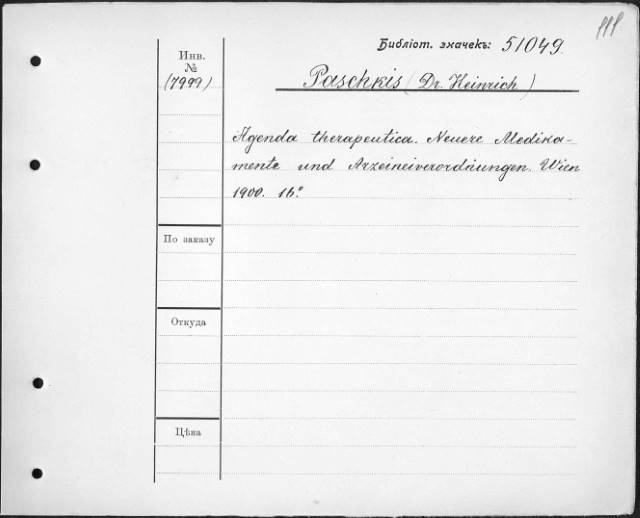 Библіот. значекъ: 51049.
Инв.
№
(7999)
Paschkis (Dr. Heinrich)
Agenda therapeutica. Neuere Medika-
mente und Arzeineiverordnungen. Wien
1900. 16°
По заказу
Откуда
Цѣна